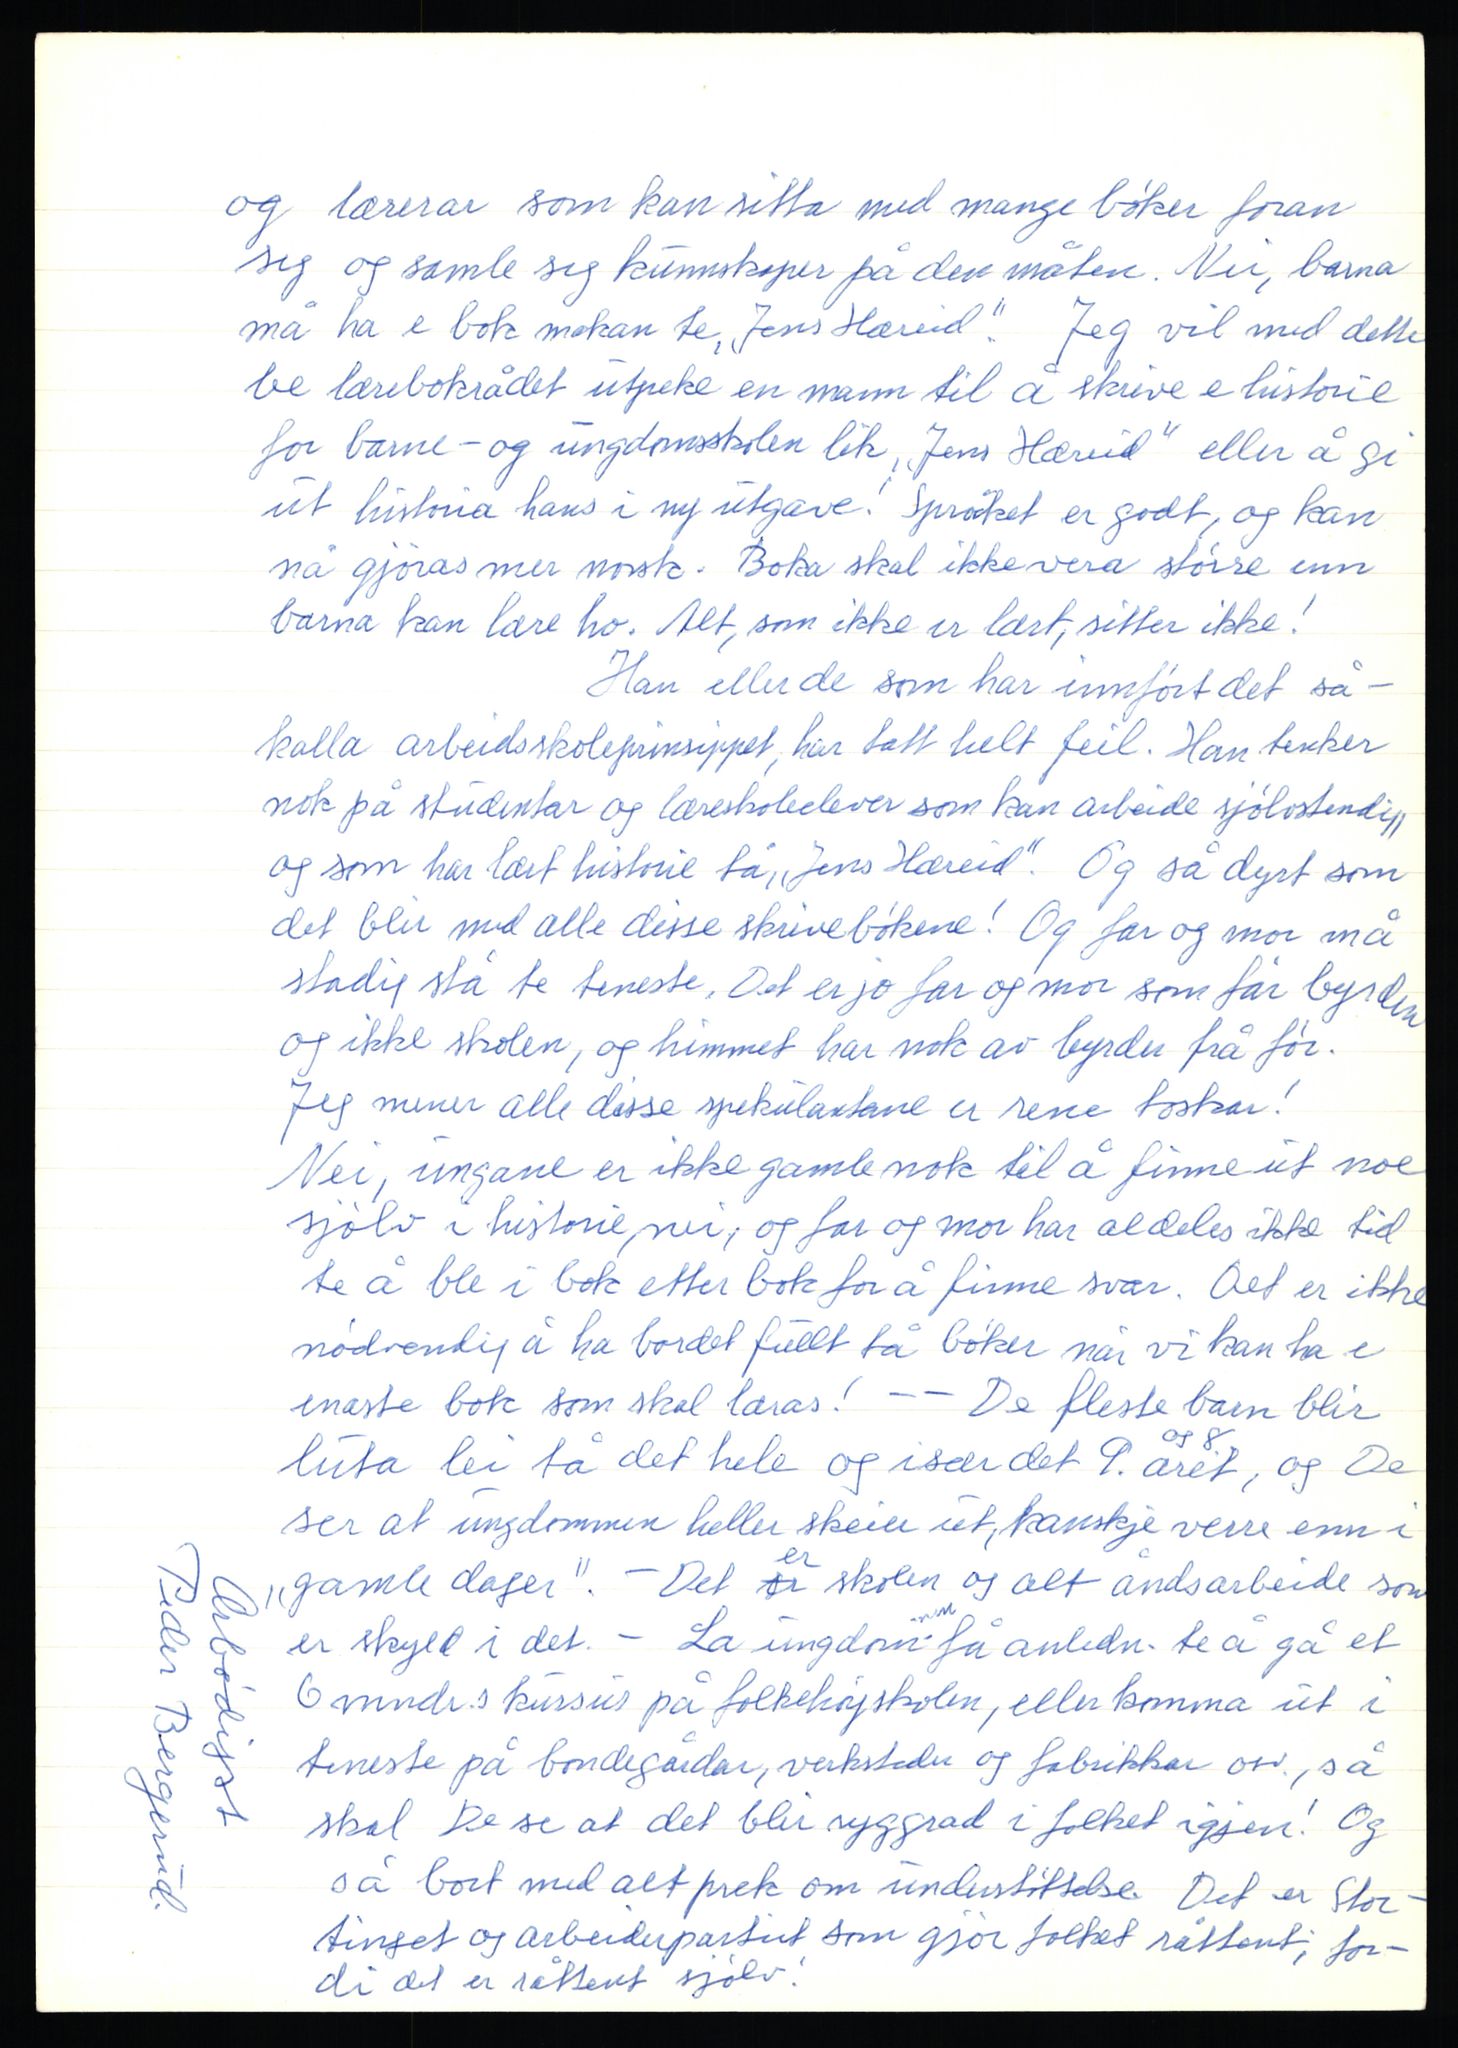 og lærerar som kan sitta med mange bøker foran
seg og samle seg kunnskaper på den måten. Nei, barna
må ha e bok makan te „Jens Hæreid". Jeg vil med dette
be lærebokrådet utpeke en mann til å skrive e historie
for barne- og ungdomsskolen lik „Jens Hæreid" eller å gi
ut historia hans i ny utgave! Språket er godt, og kan
nå gjöras mer norsk. Boka skal ikke vera större enn
barna kan lære ho. Alt, som ikke er lært, sitter ikke!
Han eller de som har innfört det så-
kalla arbeidsskoleprinsippet, har tatt helt feil. Han tenker
nok på studentar og læreskoleelever som kan arbeide sjölvstendig
og som har lært historie tå „Jens Hæreid". Og så dyrt som
det blir med alle disse skrivebökene! Og far og mor må
stadig stå te teneste. Det er jo far og mor som får byrden
og ikke skolen, og himmet har nok av byrder frå för.
Jeg mener alle disse spekulantane er rene toskar!
Nei, ungane er ikke gamle nok til å finne ut noe
sjölv i historie, nei, og far og mor har aldeles ikke tid
te å ble i bok etter bok for å finne svar. Det er ikke
nödvendig å ha bordet fullt tå böker når vi kan ha e
enaste bok som skal læras! -- De fleste barn blir
luta lei tå det hele og især det 9. og 8. året, og De
ser at ungdommen heller skeier ut, kanskje verre enn i
„gamle dager". - Det er skolen og alt åndsarbeide som
er skyld i det. - La ungdommen få anledn. te å gå et
6 mndr.s kursus på folkehögskolen, eller komma ut i
teneste på bondegårdar, verksteder og fabrikkar osv., så
skal De se at det blir ryggrad i folket igjen! Og
så bort med alt prek om understöttelse. Det er Stor-
tinget og arbeiderpartiet som gjör folket råttent, for-
di det er råttent sjölv!
Ærbödigst
Peder Bergerud.